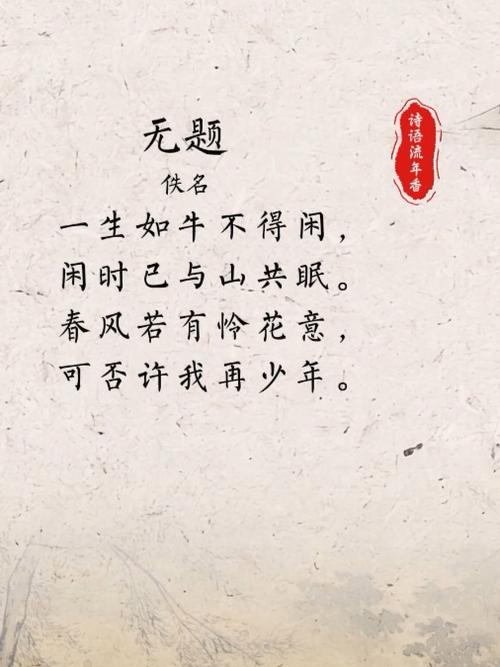 无题
佚名
一生如牛不得闲，
闲时已与山共眠。
春风若有怜花意，
可否许我再少年。
诗语流年香